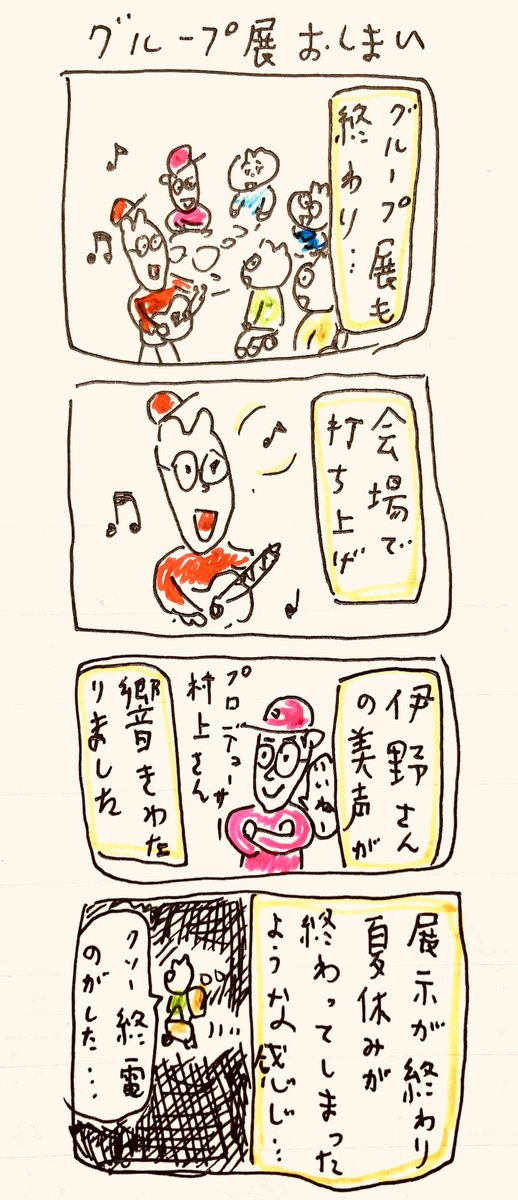 グループ展おしまい
グループ展も
終わり…
会場で
打ち上げ
伊野さん
の美声が
いいね
プロデューサー
村上さん
響きわた
りました
展示が終わり
夏休みが
終わってしまった
ような感じ…
クソー終電
のがした…